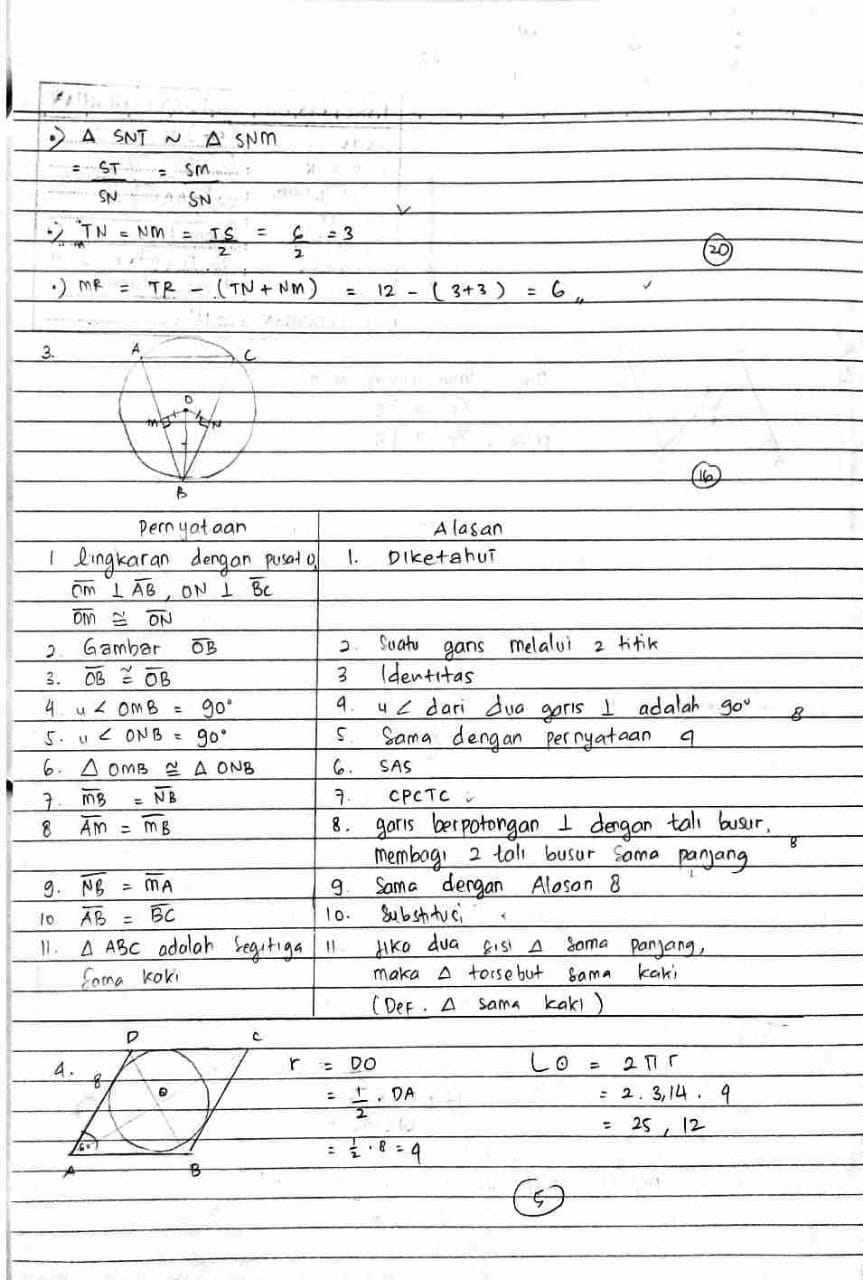 •) Δ SNT ~ Δ SNM
= ST/SN = SM/SN
•) TN = NM = TS/2 = 6/2 = 3
20
•) MR = TR - (TN + NM) = 12 - (3+3) = 6 ,,
3.
A C
O
M N
B
16
Pernyataan Alasan
1 lingkaran dengan pusat O, 1. Diketahui
OM ⊥ AB, ON ⊥ BC
OM ≅ ON
2. Gambar OB 2. Suatu garis melalui 2 titik
3. OB ≅ OB 3 Identitas
4. u < OMB = 90° 4. u < dari dua garis ⊥ adalah 90° 8
5. u < ONB = 90° 5. Sama dengan pernyataan 4
6. Δ OMB ≅ Δ ONB 6. SAS
7. MB = NB 7. CPCTC
8 AM = MB 8. garis berpotongan ⊥ dengan tali busur,
membagi 2 tali busur sama panjang 8
9. NB = MA 9. Sama dengan Alasan 8
10 AB = BC 10. Substituci
11. Δ ABC adalah segitiga 11 Jika dua sisi Δ sama panjang,
sama kaki maka Δ torsebut sama kaki
(Def. Δ sama kaki)
D C
4. 8 r = DO L O = 2 π r
O = 1/2 . DA = 2 . 3,14 . 4
60° = 1/2 . 8 = 4 = 25,12
A B
5